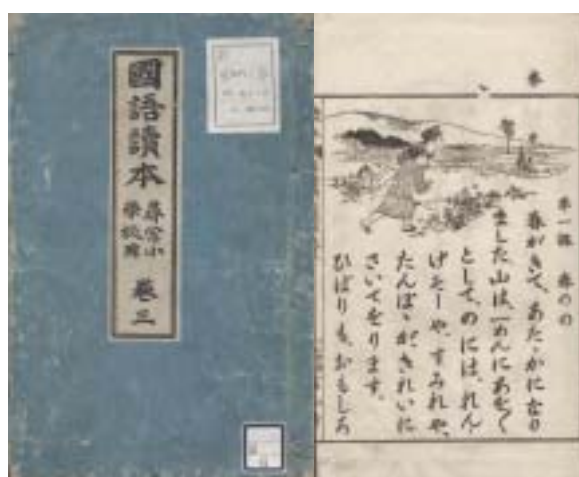 國語讀本
尋常小
學校用
卷三
春
第一課 春のの
春がきて、あたゝかになり
ました。山は、一めんにあをく
として、のには、れん
げそーや、すみれや、
たんぽゝが、きれいに
さいてをります。
ひばりも、おもしろ